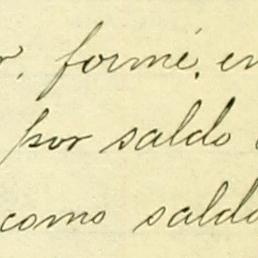 formé, en
por saldo
como saldo